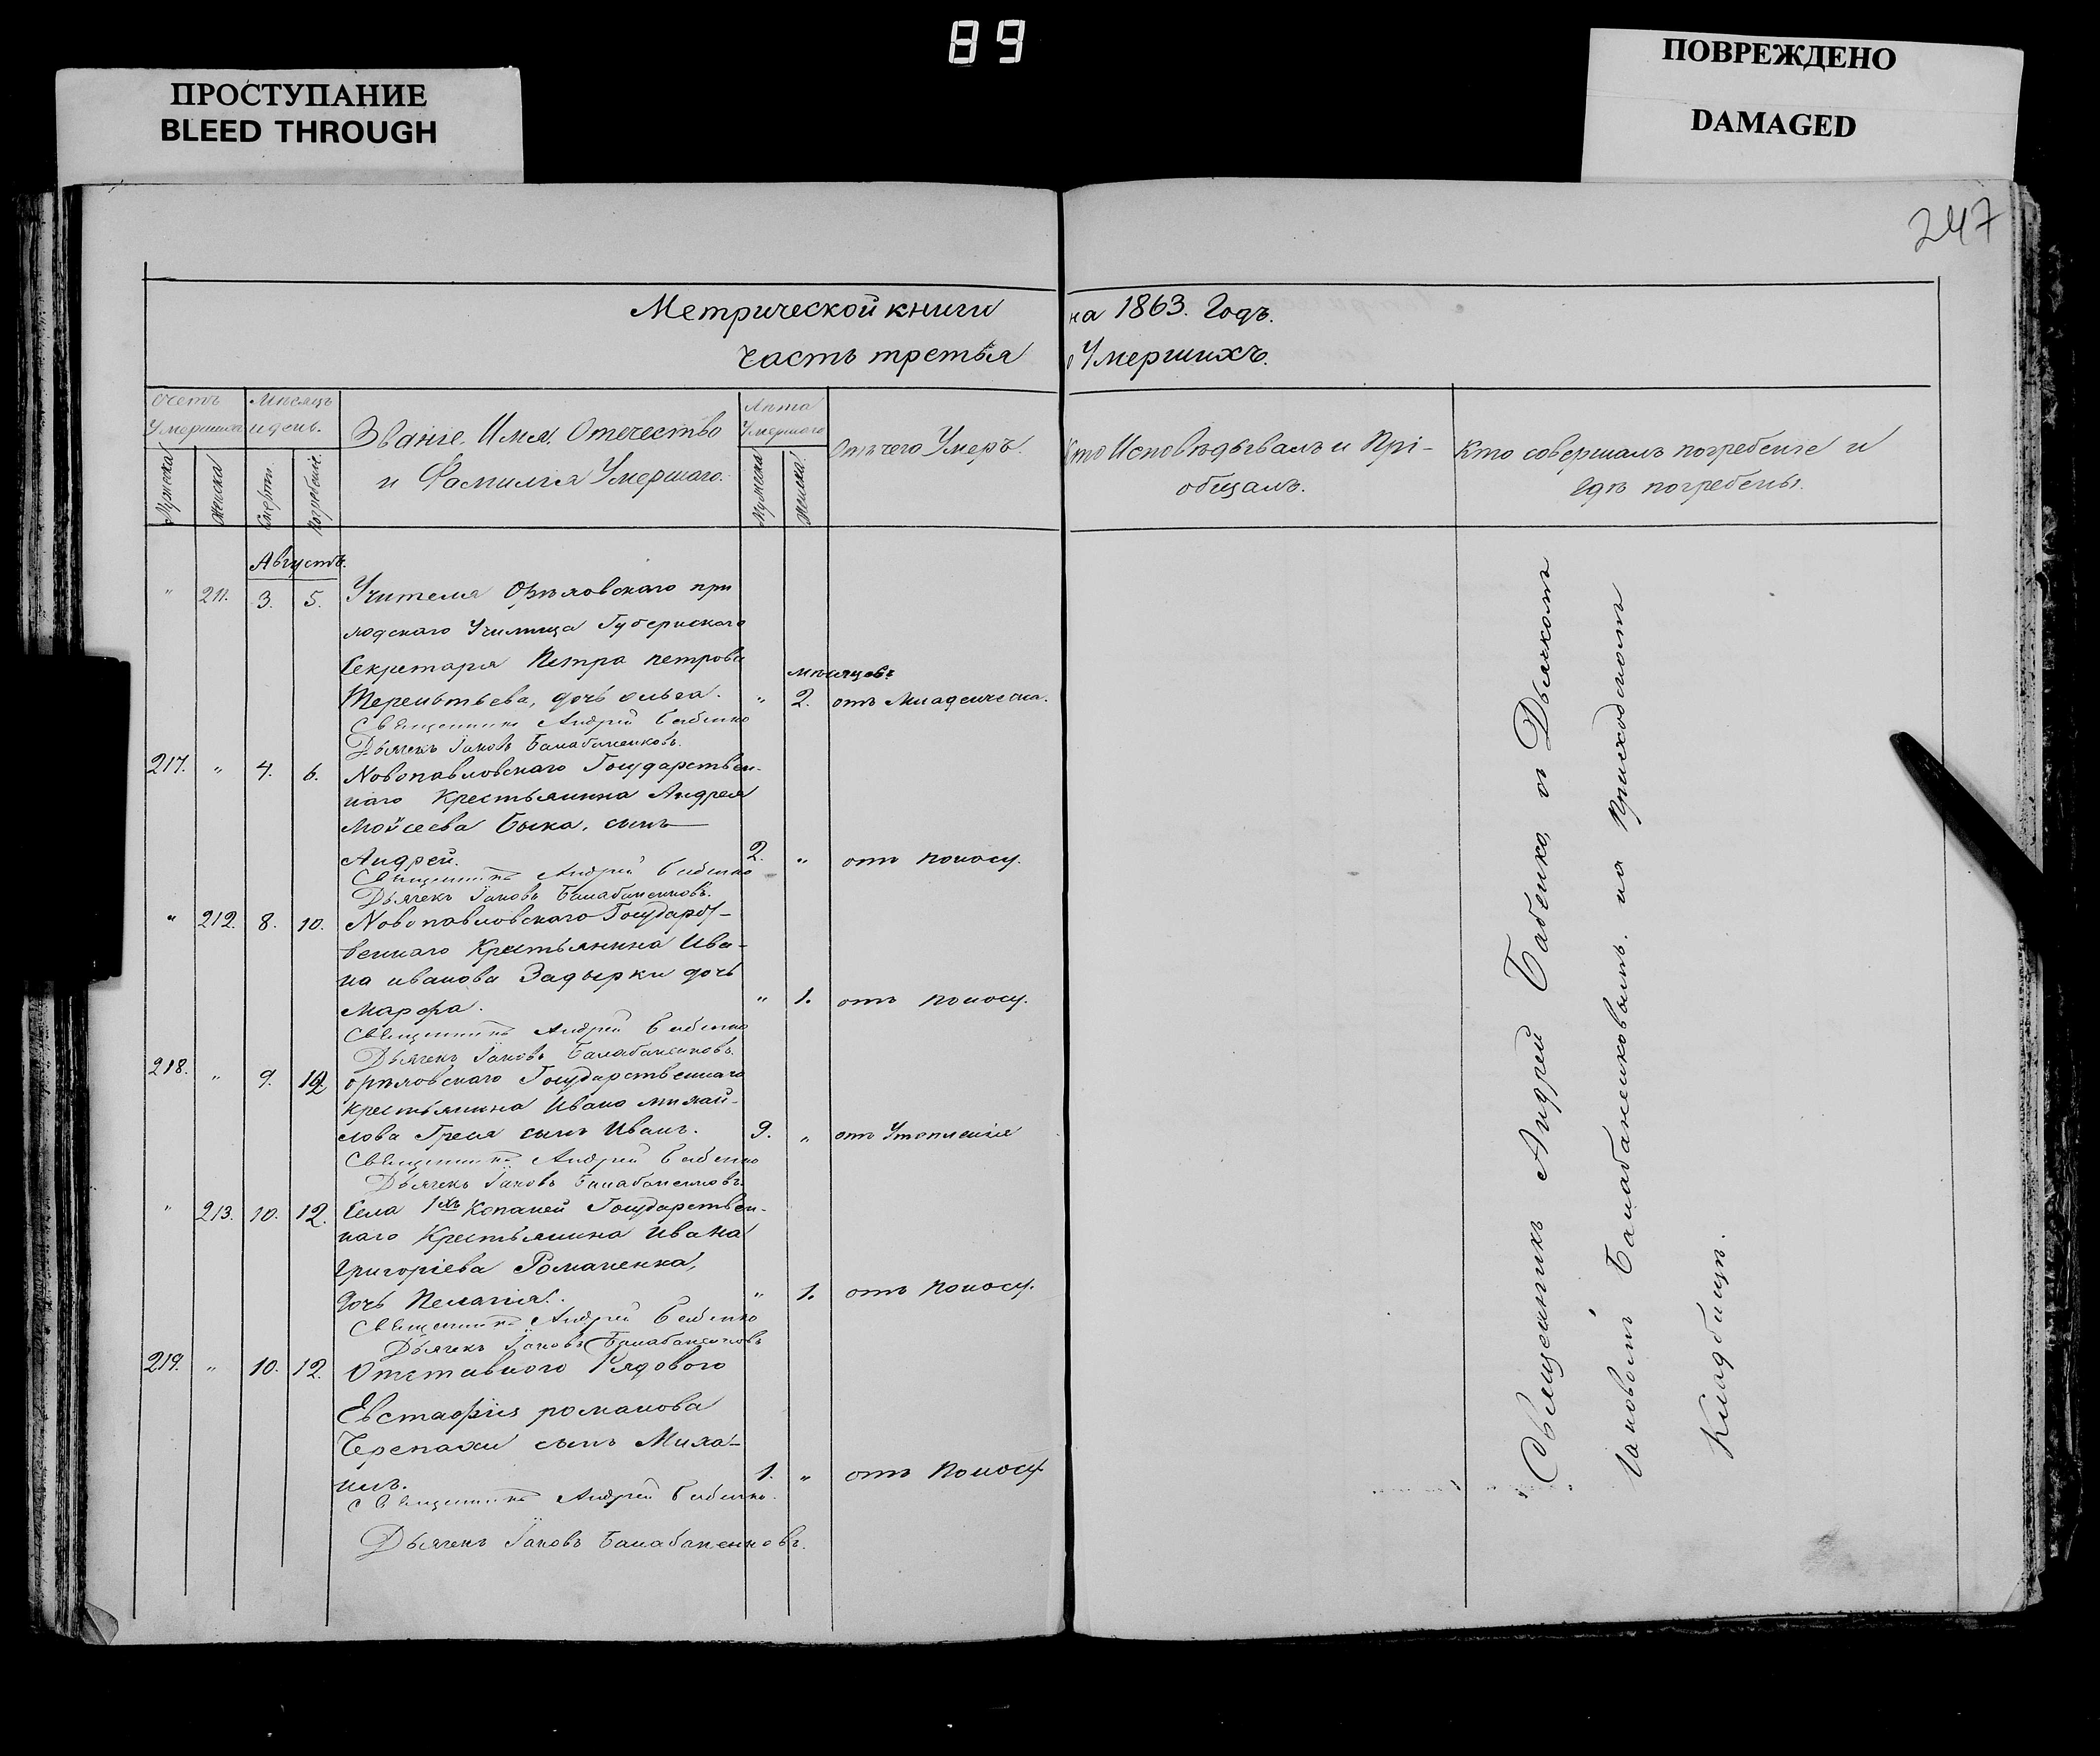 89
ПРОСТУПАНИЕ
BLEED THROUGH
ПОВРЕЖДЕНО
DAMAGED
247
Метрической книги на 1863. Годъ.
часть третья о Умершихъ.
счетъ Умершихъ
Мужеска
Женска
Мѣсяцъ и день.
Смерти
Погребенiе.
Званiе, Имя, Отечество
и Фамилiя Умершаго.
Лѣта Умершаго
Мужеска
Женска
Отъ чего Умеръ.
Кто Исповѣдывалъ и Прi-
общалъ.
Кто совершалъ погребенiе и
Гдѣ погребены.
Августъ.
" 211. 3. 5. Учителя Орѣховскаго при
ходскаго Училища Губернскаго
Секретаря Петра петрова
мѣсяцевъ
Терентьева, дочь ольга. " 2. отъ Младенческа.
Священникъ Андрей Бабенко
Дьячекъ Iаковъ Балабаненковъ.
217. " 4. 6. Новопавловскаго Государствен-
наго Крестьянина Андрея
Мойсеева Быка, сынъ
Андрей. 2. " отъ поносу.
Священникъ Андрей Бабенко
Дьячекъ Iаковъ Балабаненковъ.
" 212. 8. 10. Новопавловскаго Государст-
веннаго Крестьянина Ива-
на иванова Задырки дочь
Марфа. " 1. отъ поносу.
Священникъ Андрей Бабенко
Дьячекъ Iаковъ Балабаненковъ.
218. " 9. 12 орѣховскаго Государственнаго
крестьянина Ивана михай-
лова Грека сынъ Иванъ. 9. " отъ Утопленiя
Священникъ Андрей Бабенко
Дьячекъ Iаковъ Балабаненковъ.
" 213. 10. 12. Села 1хъ Копаней Государствен-
наго Крестьянина Ивана
Григорiева Романенка,
дочь Пелагiя. " 1. отъ поносу.
Священникъ Андрей Бабенко
Дьячекъ Iаковъ Балабаненковъ
219. " 10. 12. Отставного Рядового
Евстафiя романова
Черепахи сынъ Миха-
илъ. 1. " отъ Поносу.
Священникъ Андрей Бабенко.
Дьячекъ Iаковъ Балабаненковъ.
Священникъ Андрей Бабенко, съ Дьячкомъ
Iаковомъ Балабаненковымъ. на Приходскомъ
Кладбищѣ.